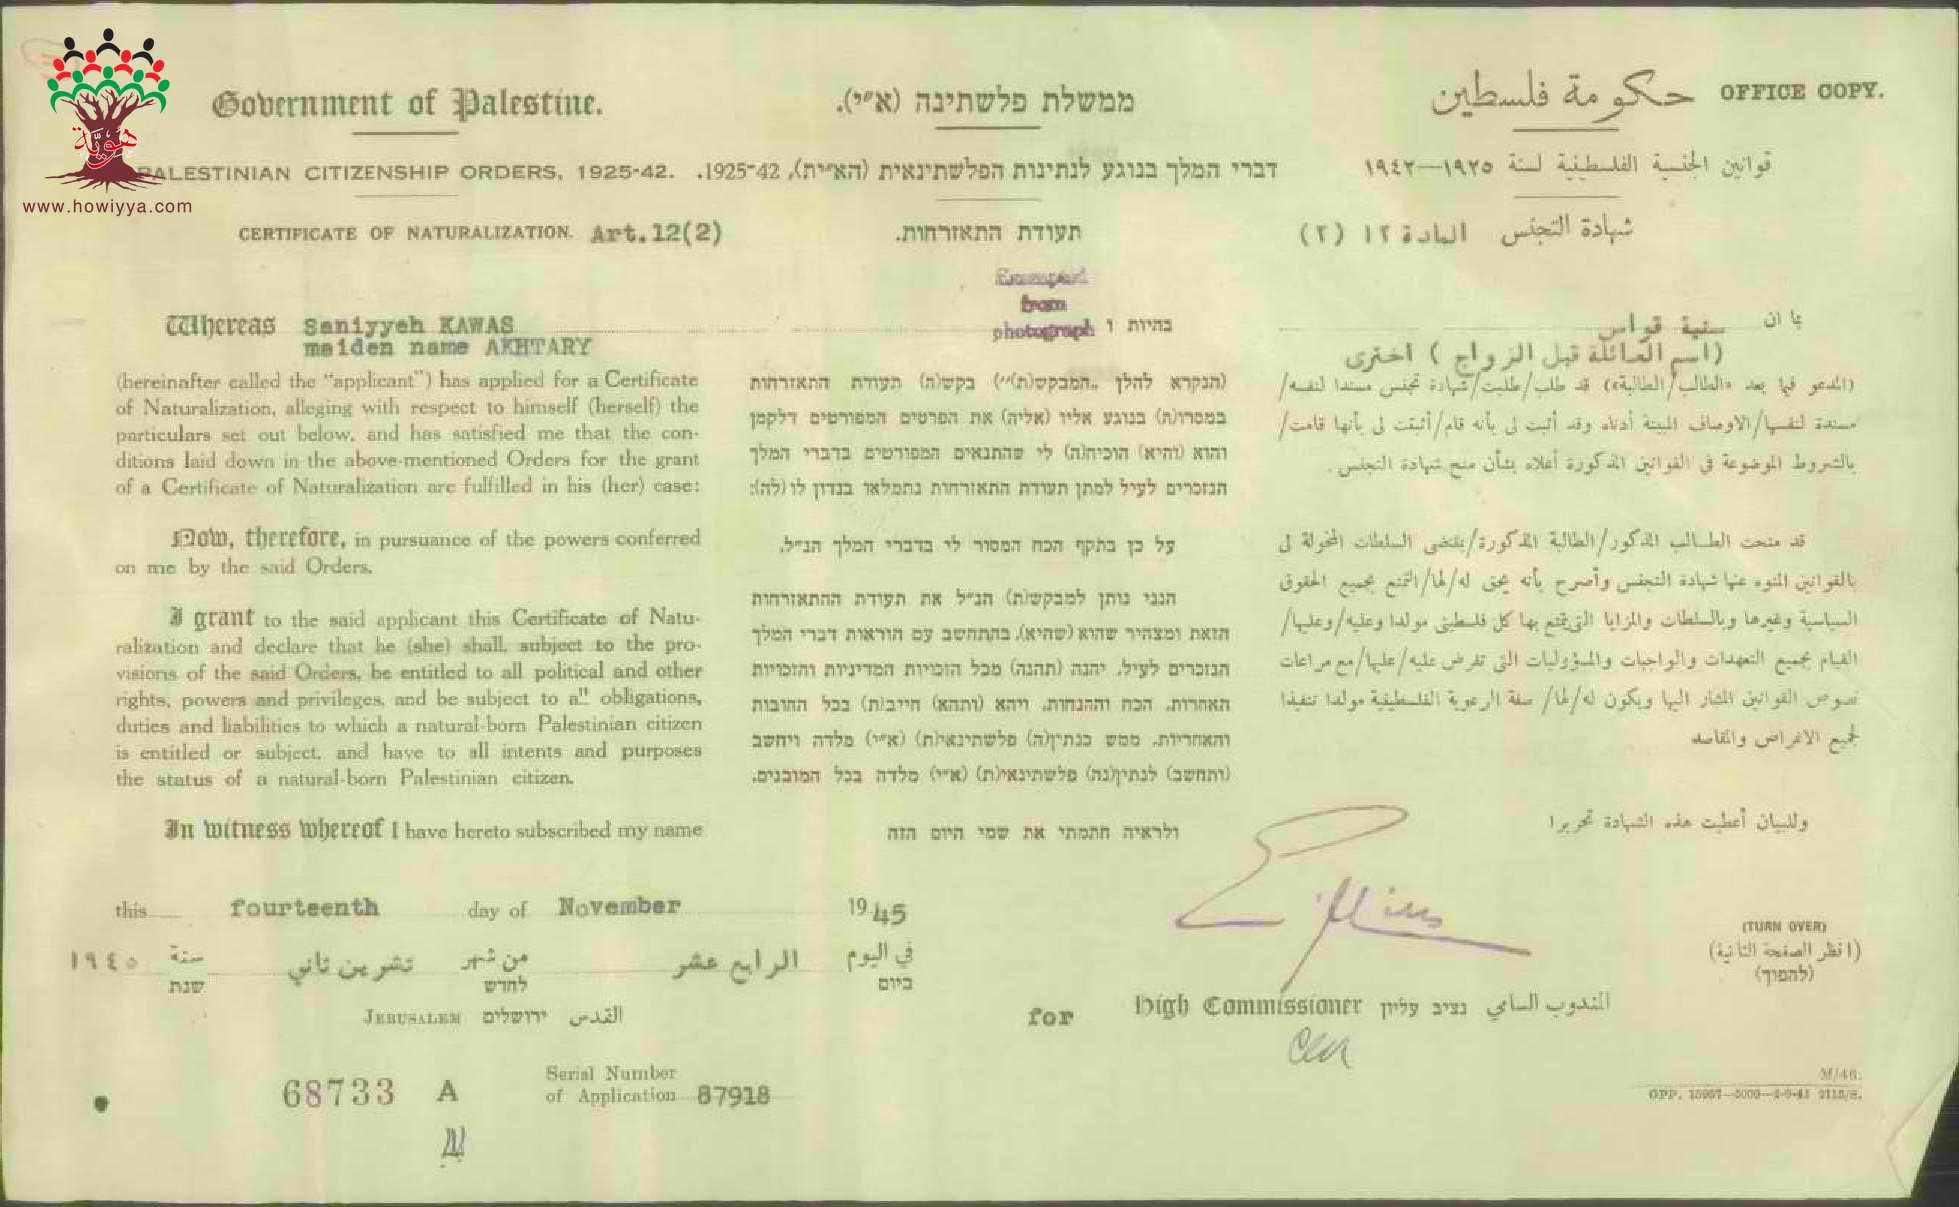 هَوِيَّة
www.howiyya.com
OFFICE COPY.
Government of Palestine.
PALESTINIAN CITIZENSHIP ORDERS, 1925-42.
CERTIFICATE OF NATURALIZATION. Art.12(2)
Whereas Saniyyeh KAWAS
maiden name AKHTARY
(hereinafter called the "applicant") has applied for a Certificate
of Naturalization, alleging with respect to himself (herself) the
particulars set out below, and has satisfied me that the con-
ditions laid down in the above-mentioned Orders for the grant
of a Certificate of Naturalization are fulfilled in his (her) case:
Now, therefore, in pursuance of the powers conferred
on me by the said Orders.
I grant to the said applicant this Certificate of Natu-
ralization and declare that he (she) shall, subject to the pro-
visions of the said Orders, be entitled to all political and other
rights, powers and privileges, and be subject to all obligations,
duties and liabilities to which a natural-born Palestinian citizen
is entitled or subject, and have to all intents and purposes
the status of a natural-born Palestinian citizen.
In witness whereof I have hereto subscribed my name
ממשלת פלשתינה (א״י).
דברי המלך בנוגע לנתינות הפלשתינאית (הא״ית), 1925-42.
תעודת התאזרחות.
Exempted
from
photograph
בהיות ו
(הנקרא להלן „המבקש(ת)״) בקש(ה) תעודת התאזרחות
במסרו(ה) בנוגע אליו (אליה) את הפרטים המפורטים דלקמן
והוא (והיא) הוכיח(ה) לי שהתנאים המפורטים בדברי המלך
הנזכרים לעיל למתן תעודת התאזרחות נתמלאו בנדון לו (לה):
על כן בתקף הכח המסור לי בדברי המלך הנ״ל,
הנני נותן למבקש(ת) הנ״ל את תעודת ההתאזרחות
הזאת ומצהיר שהוא (שהיא), בהתחשב עם הוראות דברי המלך
הנזכרים לעיל, יהנה (תהנה) מכל הזכויות המדיניות והזכויות
האחרות, הכח וההנחות, ויהא (ותהא) חייב(ת) בכל החובות
והאחריות, ממש כנתין(ה) פלשתינאי(ת) (א״י) מלדה ויחשב
(ותחשב) לנתין(נה) פלשתינאי(ת) (א״י) מלדה בכל המובנים.
ולראיה חתמתי את שמי היום הזה
حكومة فلسطين
قوانين الجنسية الفلسطينية لسنة ١٩٢٥—١٩٤٢
شهادة التجنس المادة ١٢ (٢)
بما ان سنية قواس
(اسم العائلة قبل الزواج) اخترى
(المدعو فيما بعد «الطالب/الطالبة») قد طلب/طلبت/شهادة تجنس مسندا لنفسه/
مسندة لنفسها/الاوصاف المبينة أدناه وقد أثبت لى بأنه قام/أثبتت لى بأنها قامت/
بالشروط الموضوعة في القوانين المذكورة أعلاه بشأن منح شهادة التجنس.
قد منحت الطالب المذكور/الطالبة المذكورة/بمقتضى السلطات المخولة لى
بالقوانين المنوه عنها شهادة التجنس وأصرح بأنه يحق له/لها/التمتع بجميع الحقوق
السياسية وغيرها وبالسلطات والمزايا التى يتمتع بها كل فلسطينى مولدا وعليه/وعليها/
القيام بجميع التعهدات والواجبات والمسؤوليات التى تفرض عليه/عليها/مع مراعات
نصوص القوانين المشار اليها ويكون له/لها/ صفة الرعوية الفلسطينية مولدا تنفيذا
لجميع الاغراض والمقاصد
وللبيان أعطيت هذه الشهادة تحريرا
this fourteenth day of November 1945
في اليوم الرابع عشر من شهر تشرين ثاني سنة ١٩٤٥
ביום לחדש שנת
JERUSALEM ירושלים القدس
for High Commissioner נציב עליון المندوب السامي
(TURN OVER)
(انظر الصفحة الثانية)
(להפוך)
68733 A
Serial Number
of Application 87918
M/46.